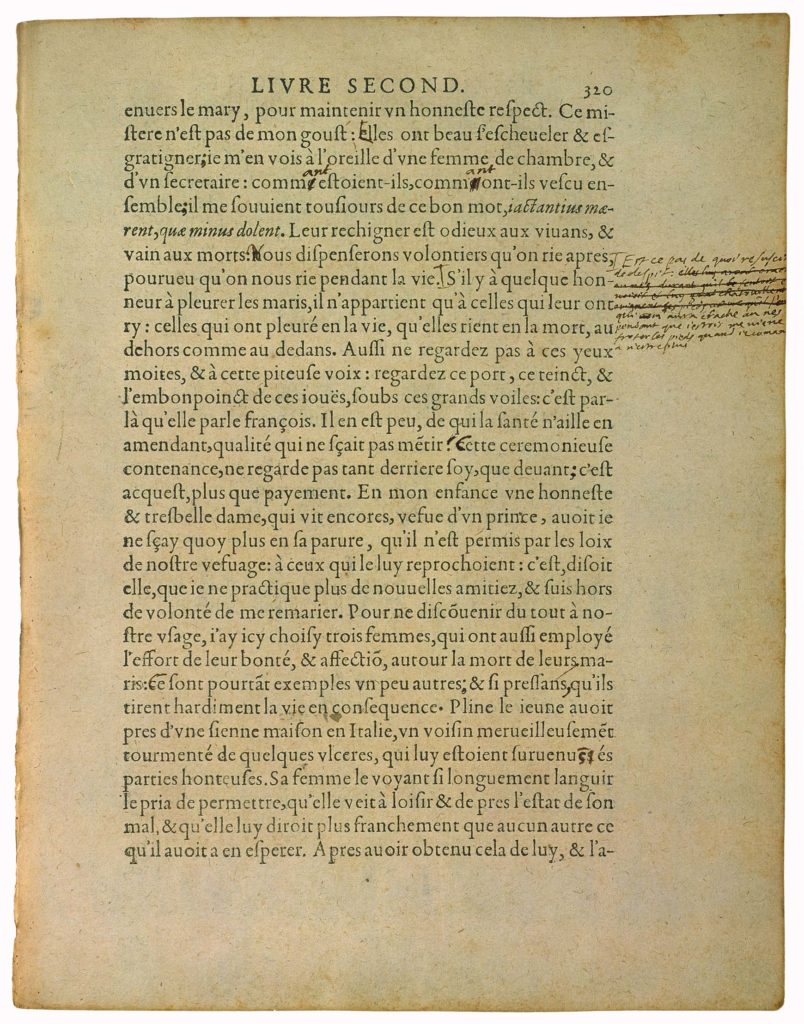 LIVRE SECOND.
320
enuers le mary, pour maintenir vn honneſte reſpect. Ce mi-
ſtere n'eſt pas de mon gouſt: Elles ont beau ſ'eſcheueler & eſ-
gratigner; ie m'en vois à l'oreille d'vne femme de chambre, &
d'vn ſecretaire: commant eſtoient-ils, commant ont-ils veſcu en-
ſemble; il me ſouuient touſiours de ce bon mot, iactantius mæ-
rent, quæ minus dolent. Leur rechigner eſt odieux aux viuans, &
vain aux morts: Nous diſpenſerons volontiers qu'on rie apres,
pourueu qu'on nous rie pendant la vie. S'il y à quelque hon-
neur à pleurer les maris, il n'appartient qu'à celles qui leur ont
ry: celles qui ont pleuré en la vie, qu'elles rient en la mort, au
dehors comme au dedans. Auſſi ne regardez pas à ces yeux
moites, & à cette piteuſe voix: regardez ce port, ce teinct, &
l'embonpoinct de ces iouës, ſoubs ces grands voiles: c'eſt par-
là qu'elle parle françois. Il en eſt peu, de qui la ſanté n'aille en
amendant, qualité qui ne ſçait pas mẽtir: Cette ceremonieuſe
contenance, ne regarde pas tant derriere ſoy, que deuant; c'eſt
acqueſt, plus que payement. En mon enfance vne honneſte
& treſbelle dame, qui vit encores, vefue d'vn prince, auoit ie
ne ſçay quoy plus en ſa parure, qu'il n'eſt permis par les loix
de noſtre vefuage: à ceux qui le luy reprochoient: c'eſt, diſoit
elle, que ie ne practique plus de nouuelles amitiez, & ſuis hors
de volonté de me remarier. Pour ne diſcõuenir du tout à no-
ſtre vſage, i'ay icy choiſy trois femmes, qui ont auſſi employé
l'effort de leur bonté, & affectiõ, autour la mort de leurs ma-
ris: Ce ſont pourtãt exemples vn peu autres; & ſi preſſans, qu'ils
tirent hardiment la vie en conſequence. Pline le ieune auoit
pres d'vne ſienne maiſon en Italie, vn voiſin merueilleuſemẽt
tourmenté de quelques vlceres, qui luy eſtoient ſuruenus és
parties honteuſes. Sa femme le voyant ſi longuement languir
le pria de permettre, qu'elle veit à loiſir & de pres l'eſtat de ſon
mal, & qu'elle luy diroit plus franchement que aucun autre ce
qu'il auoit a en eſperer. Apres auoir obtenu cela de luy, & l'a-
Est ce pas de quoi resusci
de despit:
qui m'aura craché au nes
pendant que i'estois me viene
froter les pieds quand ie coman
a n'estre plus